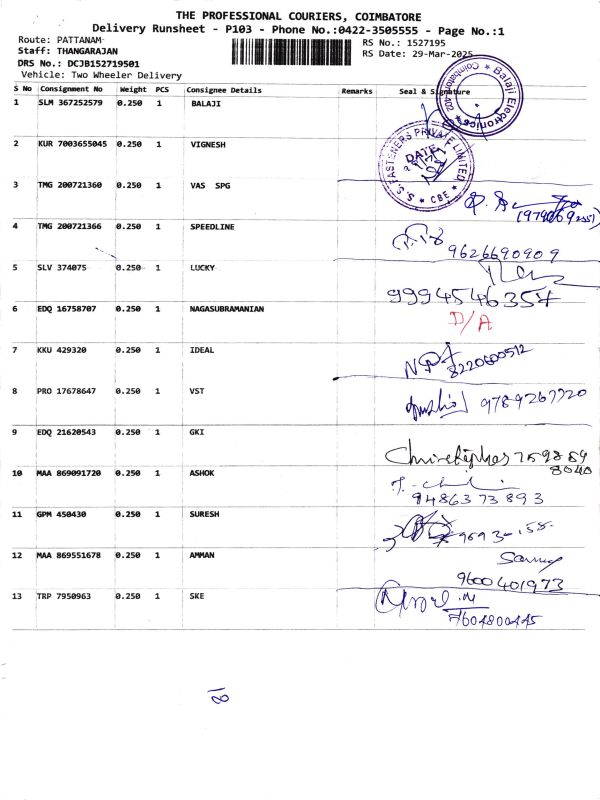 THE PROFESSIONAL COURIERS, COIMBATORE
Delivery Runsheet - P103 - Phone No.:0422-3505555 - Page No.:1
Route: PATTANAM
RS No.: 1527195
Staff: THANGARAJAN
RS Date: 29-Mar-2025
DRS No.: DCJB152719501
Vehicle: Two Wheeler Delivery
S No Consignment No Weight PCS Consignee Details Remarks Seal & Signature
1 SLM 367252579 0.250 1 BALAJI
Balaji Electronics
2 KUR 7003655045 0.250 1 VIGNESH
S.S. FASTENERS PRIVATE LIMITED * CBE *
DATE
3 TMG 200721360 0.250 1 VAS SPG
4 TMG 200721366 0.250 1 SPEEDLINE
9626690909
5 SLV 374075 0.250 1 LUCKY
9994546354
6 EDQ 16758707 0.250 1 NAGASUBRAMANIAN
D/A
7 KKU 429320 0.250 1 IDEAL
8220600512
8 PRO 17678647 0.250 1 VST
9789267720
9 EDQ 21620543 0.250 1 GKI
Christopher 759889
8040
10 MAA 869091720 0.250 1 ASHOK
9486373893
11 GPM 450430 0.250 1 SURESH
12 MAA 869551678 0.250 1 AMMAN
9600401973
13 TRP 7950963 0.250 1 SKE
7604800445